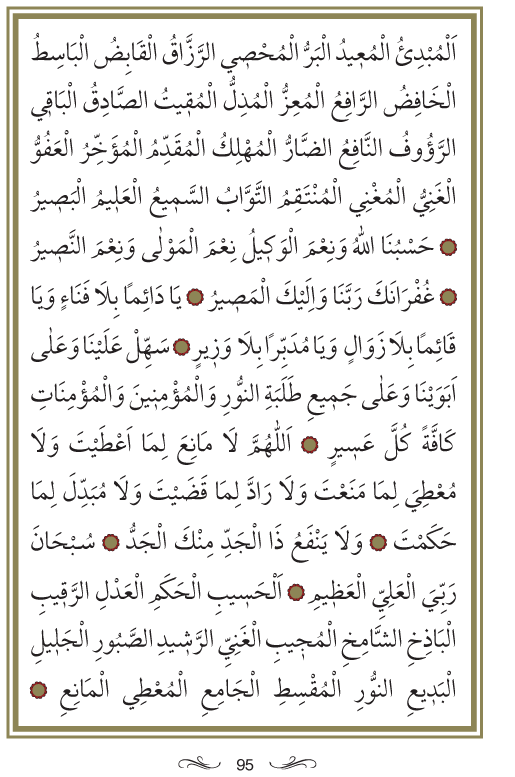 اَلْمُبْدِئُ الْمُعِيدُ الْبَرُّ الْمُحْصِي الرَّزَّاقُ الْقَابِضُ الْبَاسِطُ
الْخَافِضُ الرَّافِعُ الْمُعِزُّ الْمُذِلُّ الْمُقِيتُ الصَّادِقُ الْبَاقِي
الرَّؤُوفُ النَّافِعُ الضَّارُّ الْمُهْلِكُ الْمُقَدِّمُ الْمُؤَخِّرُ الْعَفُوُّ
الْغَنِيُّ الْمُغْنِي الْمُنْتَقِمُ التَّوَّابُ السَّمِيعُ الْعَلِيمُ الْبَصِيرُ
حَسْبُنَا اللّٰهُ وَنِعْمَ الْوَكِيلُ نِعْمَ الْمَوْلٰى وَنِعْمَ النَّصِيرُ
غُفْرَانَكَ رَبَّنَا وَاِلَيْكَ الْمَصِيرُ يَا دَائِمًا بِلَا فَنَاءٍ وَيَا
قَائِمًا بِلَا زَوَالٍ وَيَا مُدَبِّرًا بِلَا وَزِيرٍ سَهِّلْ عَلَيْنَا وَعَلٰى
اَبَوَيْنَا وَعَلٰى جَمِيعِ طَلَبَةِ النُّورِ وَالْمُؤْمِنِينَ وَالْمُؤْمِنَاتِ
كَافَّةً كُلَّ عَسِيرٍ اَللّٰهُمَّ لَا مَانِعَ لِمَا اَعْطَيْتَ وَلَا
مُعْطِيَ لِمَا مَنَعْتَ وَلَا رَادَّ لِمَا قَضَيْتَ وَلَا مُبَدِّلَ لِمَا
حَكَمْتَ وَلَا يَنْفَعُ ذَا الْجَدِّ مِنْكَ الْجَدُّ سُبْحَانَ
رَبِّيَ الْعَلِيِّ الْعَظِيمِ اَلْحَسِيبِ الْحَكَمِ الْعَدْلِ الرَّقِيبِ
الْبَاذِخِ الشَّامِخِ الْمُجِيبِ الْغَنِيِّ الرَّشِيدِ الصَّبُورِ الْجَلِيلِ
الْبَدِيعِ النُّورِ الْمُقْسِطِ الْجَامِعِ الْمُعْطِي الْمَانِعِ
95